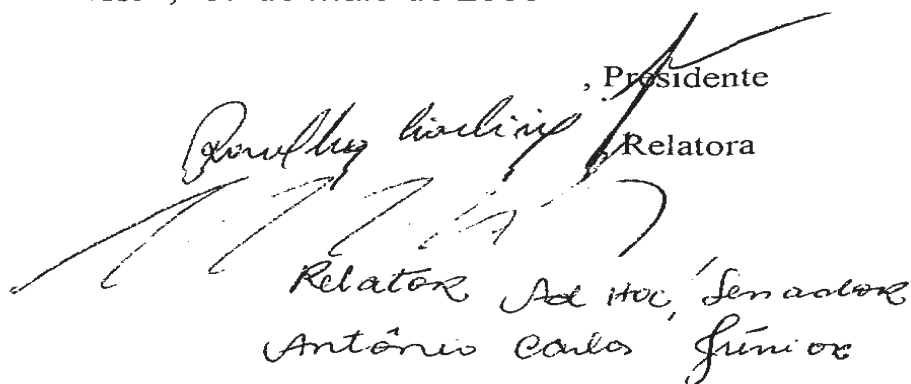 de maio de
, Presidente
, Relatora
Relator Ad Hoc, Senador
Antônio Carlos Júnior